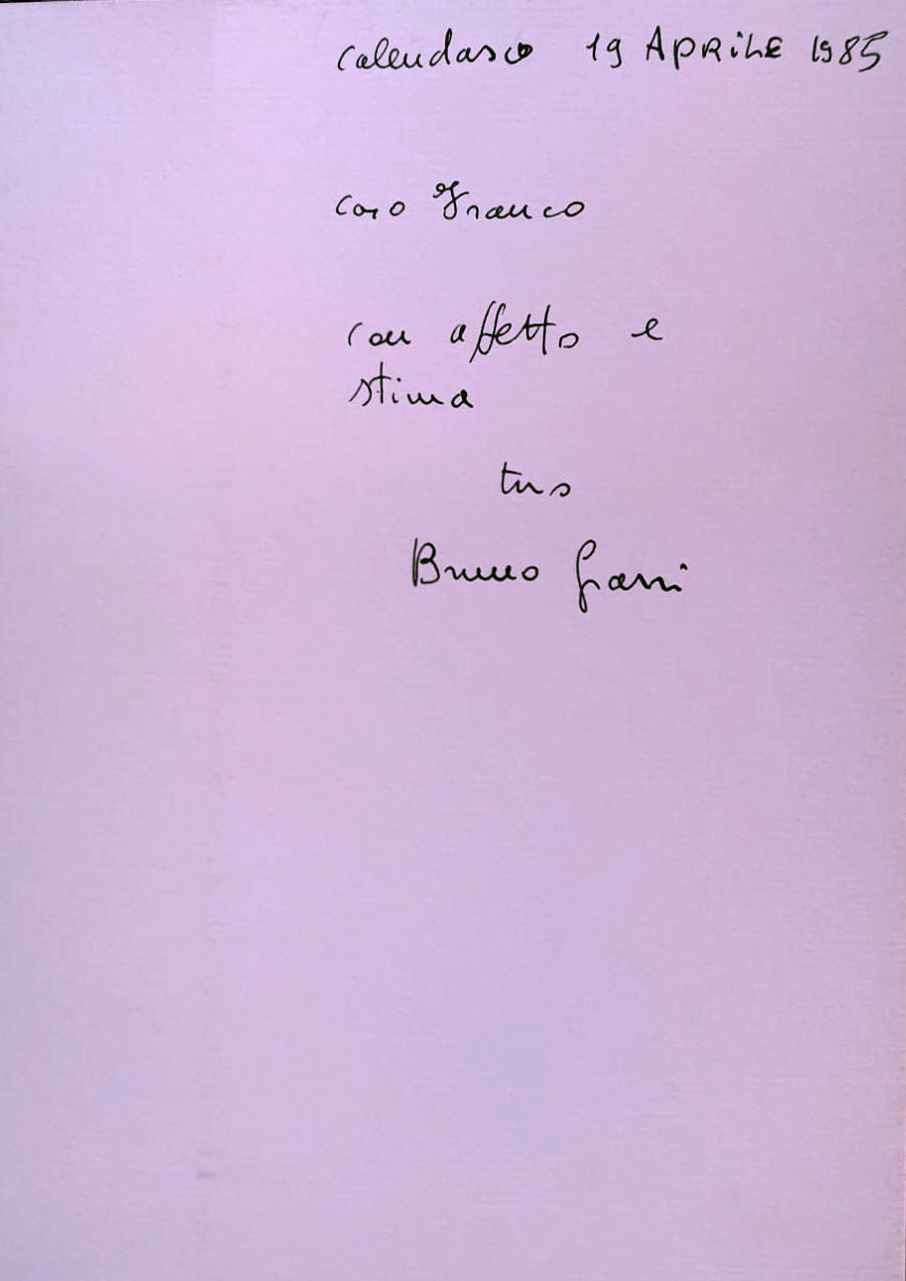 Calendasco 19 APRiLE 1985
caro Franco
con affetto e
stima
tuo
Bruno